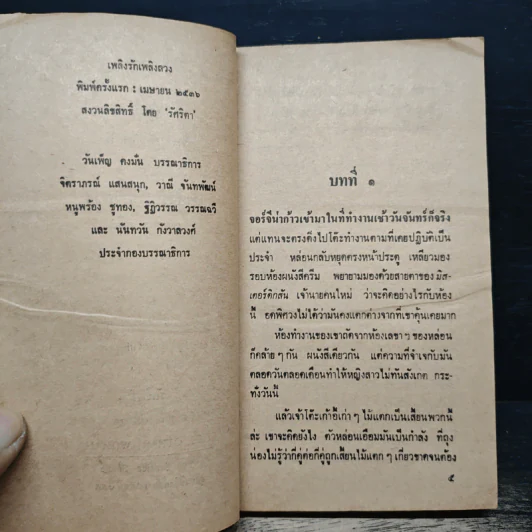 เพลิงรักเพลิงลวง
พิมพ์ครั้งแรก : เมษายน ๒๕๓๖
สงวนลิขสิทธิ์ โดย 'รัศริตา'
วันเพ็ญ คงมั่น บรรณาธิการ
จิตราภรณ์ แสนสนุก, วาณี จันทพัฒน์
หนูพร้อง ชูทอง, ฐิฏิวรรณ วรรณฉวี
และ นันทวัน กังวาลวงศ์
ประจำกองบรรณาธิการ
บทที่ ๑
จอร์จีน่าก้าวเข้ามาในที่ทำงานเช้าวันจันทร์ก็จริง
แต่แทนจะตรงดิ่งไปโต๊ะทำงานตามที่เคยปฏิบัติเป็น
ประจำ หล่อนกลับหยุดตรงหน้าประตู เหลียวมอง
รอบห้องผนังสีครีม พยายามมองด้วยสายตาของ มิส-
เตอร์ดิกสัน เจ้านายคนใหม่ ว่าจะคิดอย่างไรกับห้อง
นี้ อดพิศวงไม่ได้ว่ามันคงแตกต่างจากที่เขาคุ้นเคยมาก
ห้องทำงานของเขาถัดจากห้องเลขา ๆ ของหล่อน
ก็คล้าย ๆ กัน ผนังสีเดียวกัน แต่ความที่จำเจกับมัน
ตลอดวันตลอดเดือนทำให้หญิงสาวไม่ทันสังเกต กระ-
ทั่งวันนี้
แล้วเจ้าโต๊ะเก้าอี้เก่า ๆ ไม้แตกเป็นเสี้ยนพวกนี้
ล่ะ เขาจะคิดยังไง ตัวหล่อนเอือมมันเป็นกำลัง ที่ถุง
น่องไม่รู้ว่ากี่คู่ต่อกี่คู่ถูกเสี้ยนไม้แตก ๆ เกี่ยวขาดจนต้อง
๕